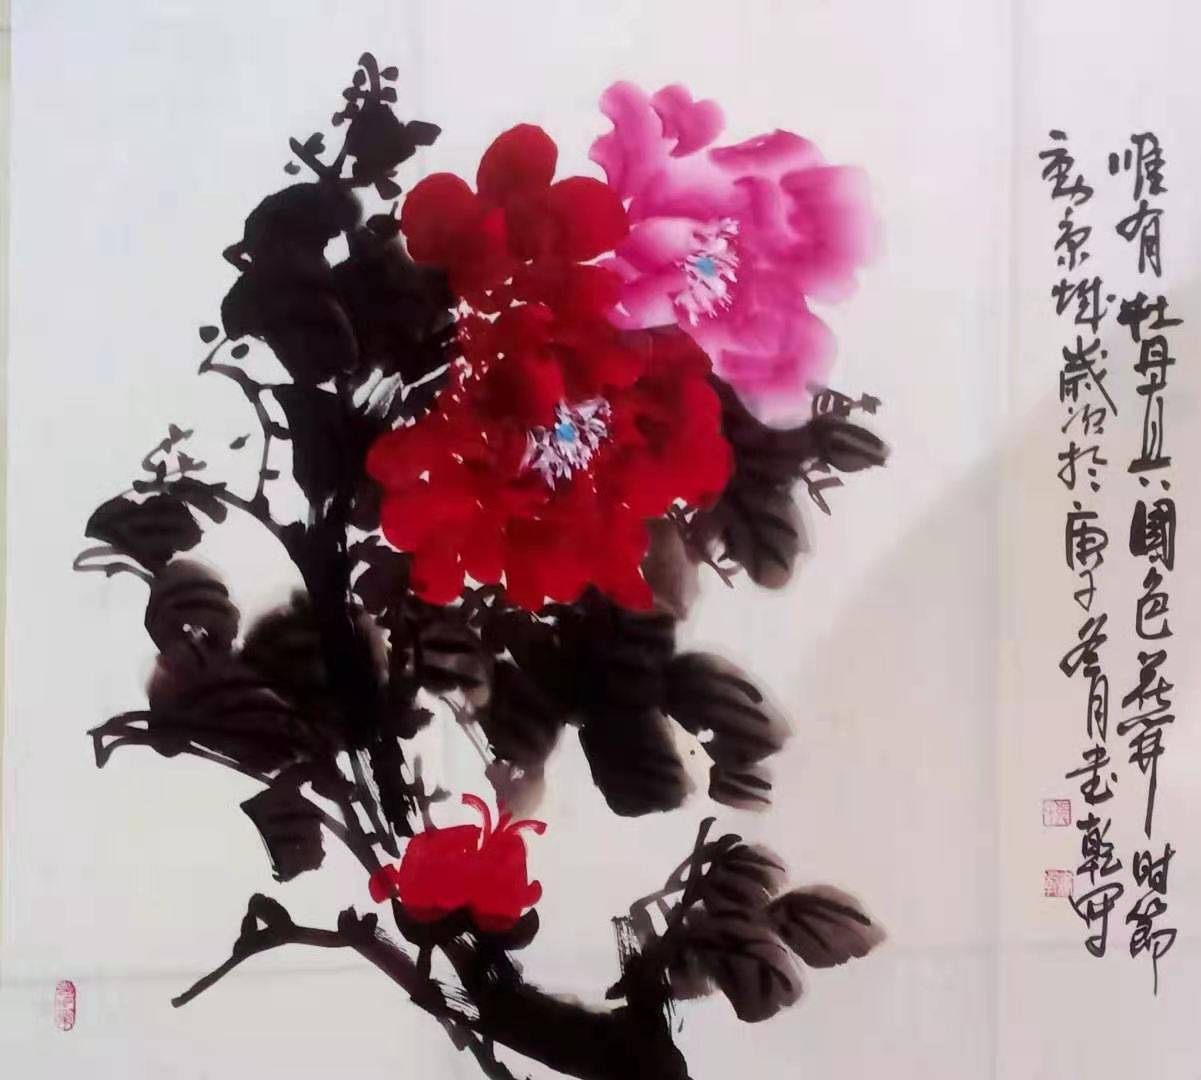 唯有牡丹真國色花開时節
動京城歲次於庚子冬月書乾写